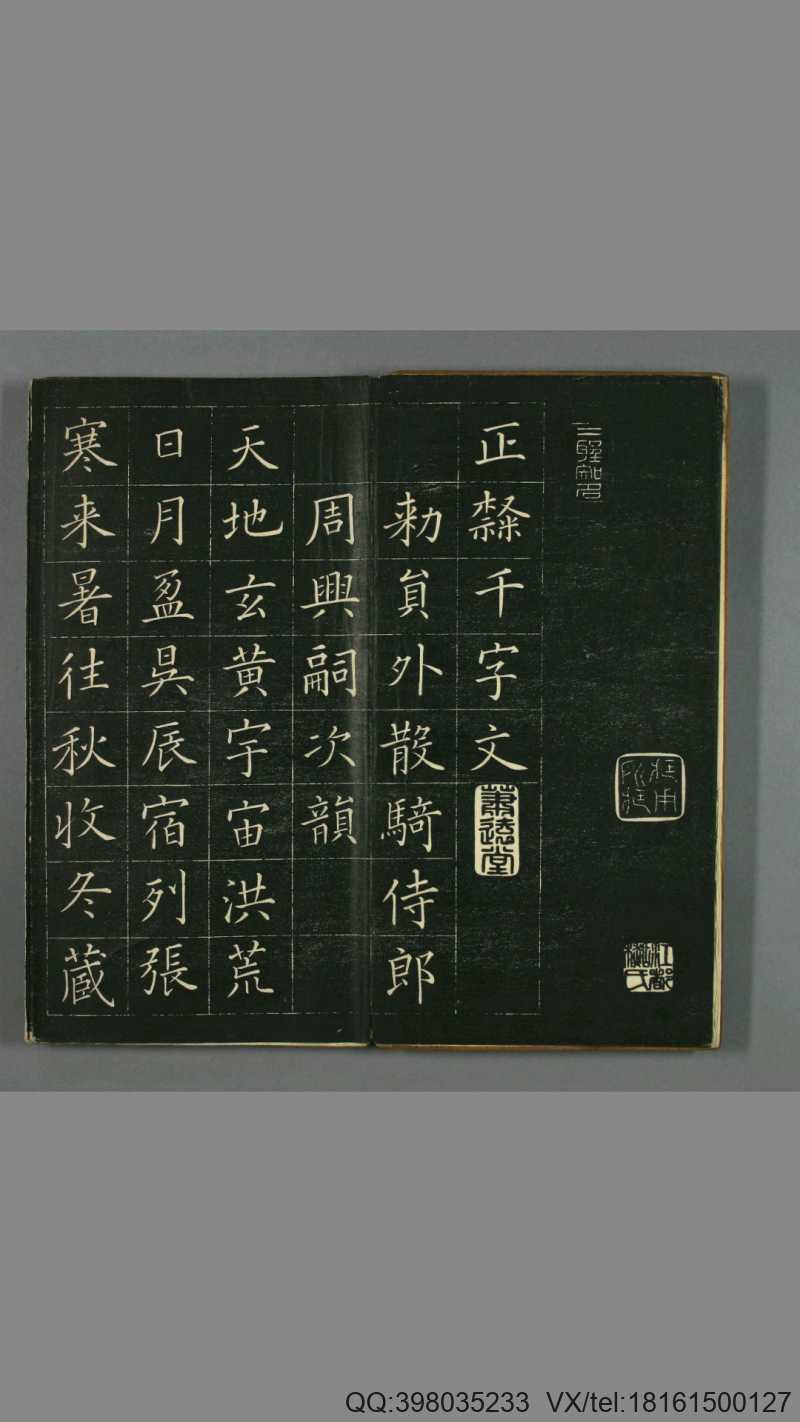 正隸千字文
勅貟外散騎侍郎
周興嗣次韻
天地玄黄宇宙洪荒
日月盈昃辰宿列張
寒来暑往秋收冬蔵
QQ:398035233 VX/tel:18161500127